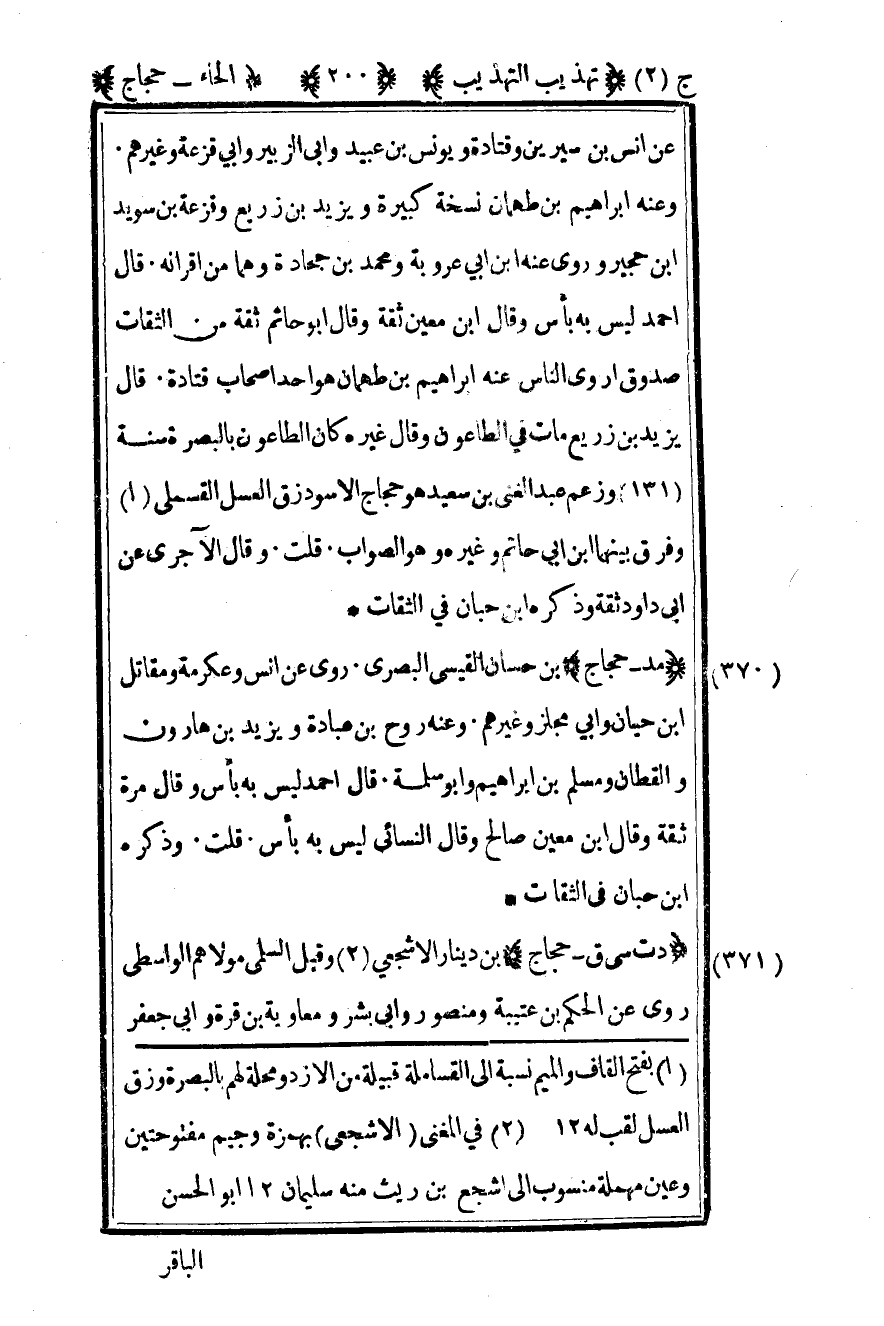 ج (٢) ﴿ تهذيب التهذيب ﴾ ﴿ ٢٠٠ ﴾ ﴿ الحاء ــ حجاج ﴾
عن انس بن سيرين وقتادة ويونس بن عبيد وابى الزبير وابي قزعة وغيرهم ·
وعنه ابراهيم بن طهمان نسخة كبيرة ويزيد بن زريع وقزعة بن سويد
ابن حجير وروى عنه ابن ابي عروبة ومحمد بن جحادة وهما من اقرانه · قال
احمد ليس به بأس وقال ابن معين ثقة وقال ابو حاتم ثقة من الثقات
صدوق اروى الناس عنه ابراهيم بن طهمان هو احد اصحاب قتادة · قال
يزيد بن زريع مات في الطاعون وقال غيره كان الطاعون بالبصرة سنة
(١٣١) وزعم عبد الغنى بن سعيد هو حجاج الاسود زق العسل القسملى (١)
وفرق بينهما ابن ابي حاتم وغيره وهو الصواب · قلت · وقال الآجرى عن
ابى داود ثقة وذكره ابن حبان في الثقات *
(٣٧٠) ﴿ مد ــ حجاج ﴾ بن حسان القيسى البصرى · روى عن انس وعكرمة ومقاتل
ابن حيان وابي مجلز وغيرهم · وعنه روح بن عبادة ويزيد بن هارون
والقطان ومسلم بن ابراهيم وابو سلمة · قال احمد ليس به بأس وقال مرة
ثقة وقال ابن معين صالح وقال النسائى ليس به بأس · قلت · وذكره
ابن حبان فى الثقات *
(٣٧١) ﴿ د ت سى ق ــ حجاج ﴾ بن دينار الاشجعي (٢) وقيل السلمى مولاهم الواسطى
روى عن الحكم بن عتيبة ومنصور وابى بشر ومعاوية بن قرة وابي جعفر
(١) بفتح القاف والميم نسبة الى القساملة قبيلة من الازد ومحلة لهم بالبصرة وزق
العسل لقب له ١٢ (٢) في المغنى (الاشجعى) بهمزة وجيم مفتوحتين
وعين مهملة منسوب الى اشجع بن ريث منه سليمان ١٢ ابو الحسن
الباقر